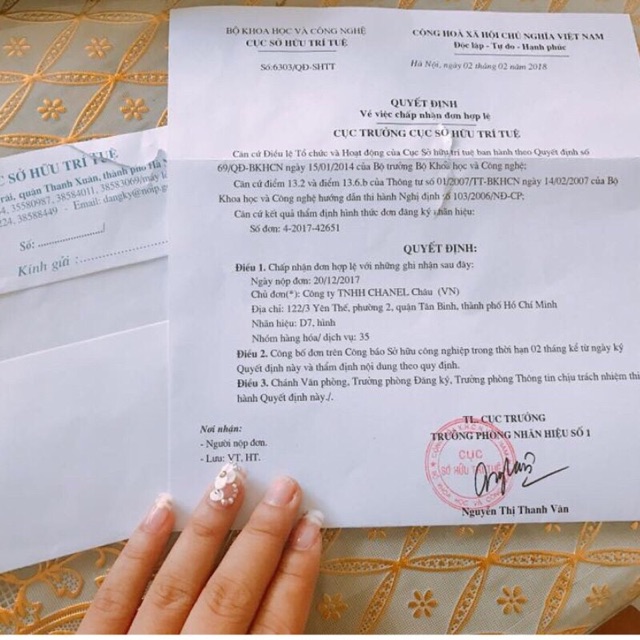 BỘ KHOA HỌC VÀ CÔNG NGHỆ
CỤC SỞ HỮU TRÍ TUỆ
Số:6303/QĐ-SHTT
CỘNG HOÀ XÃ HỘI CHỦ NGHĨA VIỆT NAM
Độc lập - Tự do - Hạnh phúc
Hà Nội, ngày 02 tháng 02 năm 2018
QUYẾT ĐỊNH
Về việc chấp nhận đơn hợp lệ
CỤC TRƯỞNG CỤC SỞ HỮU TRÍ TUỆ
Căn cứ Điều lệ Tổ chức và Hoạt động của Cục Sở hữu trí tuệ ban hành theo Quyết định số
69/QĐ-BKHCN ngày 15/01/2014 của Bộ trưởng Bộ Khoa học và Công nghệ;
Căn cứ điểm 13.2 và điểm 13.6.b của Thông tư số 01/2007/TT-BKHCN ngày 14/02/2007 của Bộ
Khoa học và Công nghệ hướng dẫn thi hành Nghị định số 103/2006/NĐ-CP;
Căn cứ kết quả thẩm định hình thức đơn đăng ký nhãn hiệu:
Số đơn: 4-2017-42651
QUYẾT ĐỊNH:
Điều 1. Chấp nhận đơn hợp lệ với những ghi nhận sau đây:
Ngày nộp đơn: 20/12/2017
Chủ đơn(*): Công ty TNHH CHANEL Châu (VN)
Địa chỉ: 122/3 Yên Thế, phường 2, quận Tân Bình, thành phố Hồ Chí Minh
Nhãn hiệu: D7, hình
Nhóm hàng hóa/ dịch vụ: 35
Điều 2. Công bố đơn trên Công báo Sở hữu công nghiệp trong thời hạn 02 tháng kể từ ngày ký
Quyết định này và thẩm định nội dung theo quy định.
Điều 3. Chánh Văn phòng, Trưởng phòng Đăng ký, Trưởng phòng Thông tin chịu trách nhiệm thi
hành Quyết định này./.
Nơi nhận:
- Người nộp đơn.
- Lưu: VT, HT.
TL. CỤC TRƯỞNG
TRƯỞNG PHÒNG NHÃN HIỆU SỐ 1
CỤC
SỞ HỮU TRÍ TUỆ
Nguyễn Thị Thanh Vân
C SỞ HỮU TRÍ TUỆ
Trãi, quận Thanh Xuân, thành phố Hà
4, 35580987, 38584011, 38583069/máy
224, 38588449 - Email: dangky@noip.
Số:
Kính gửi :